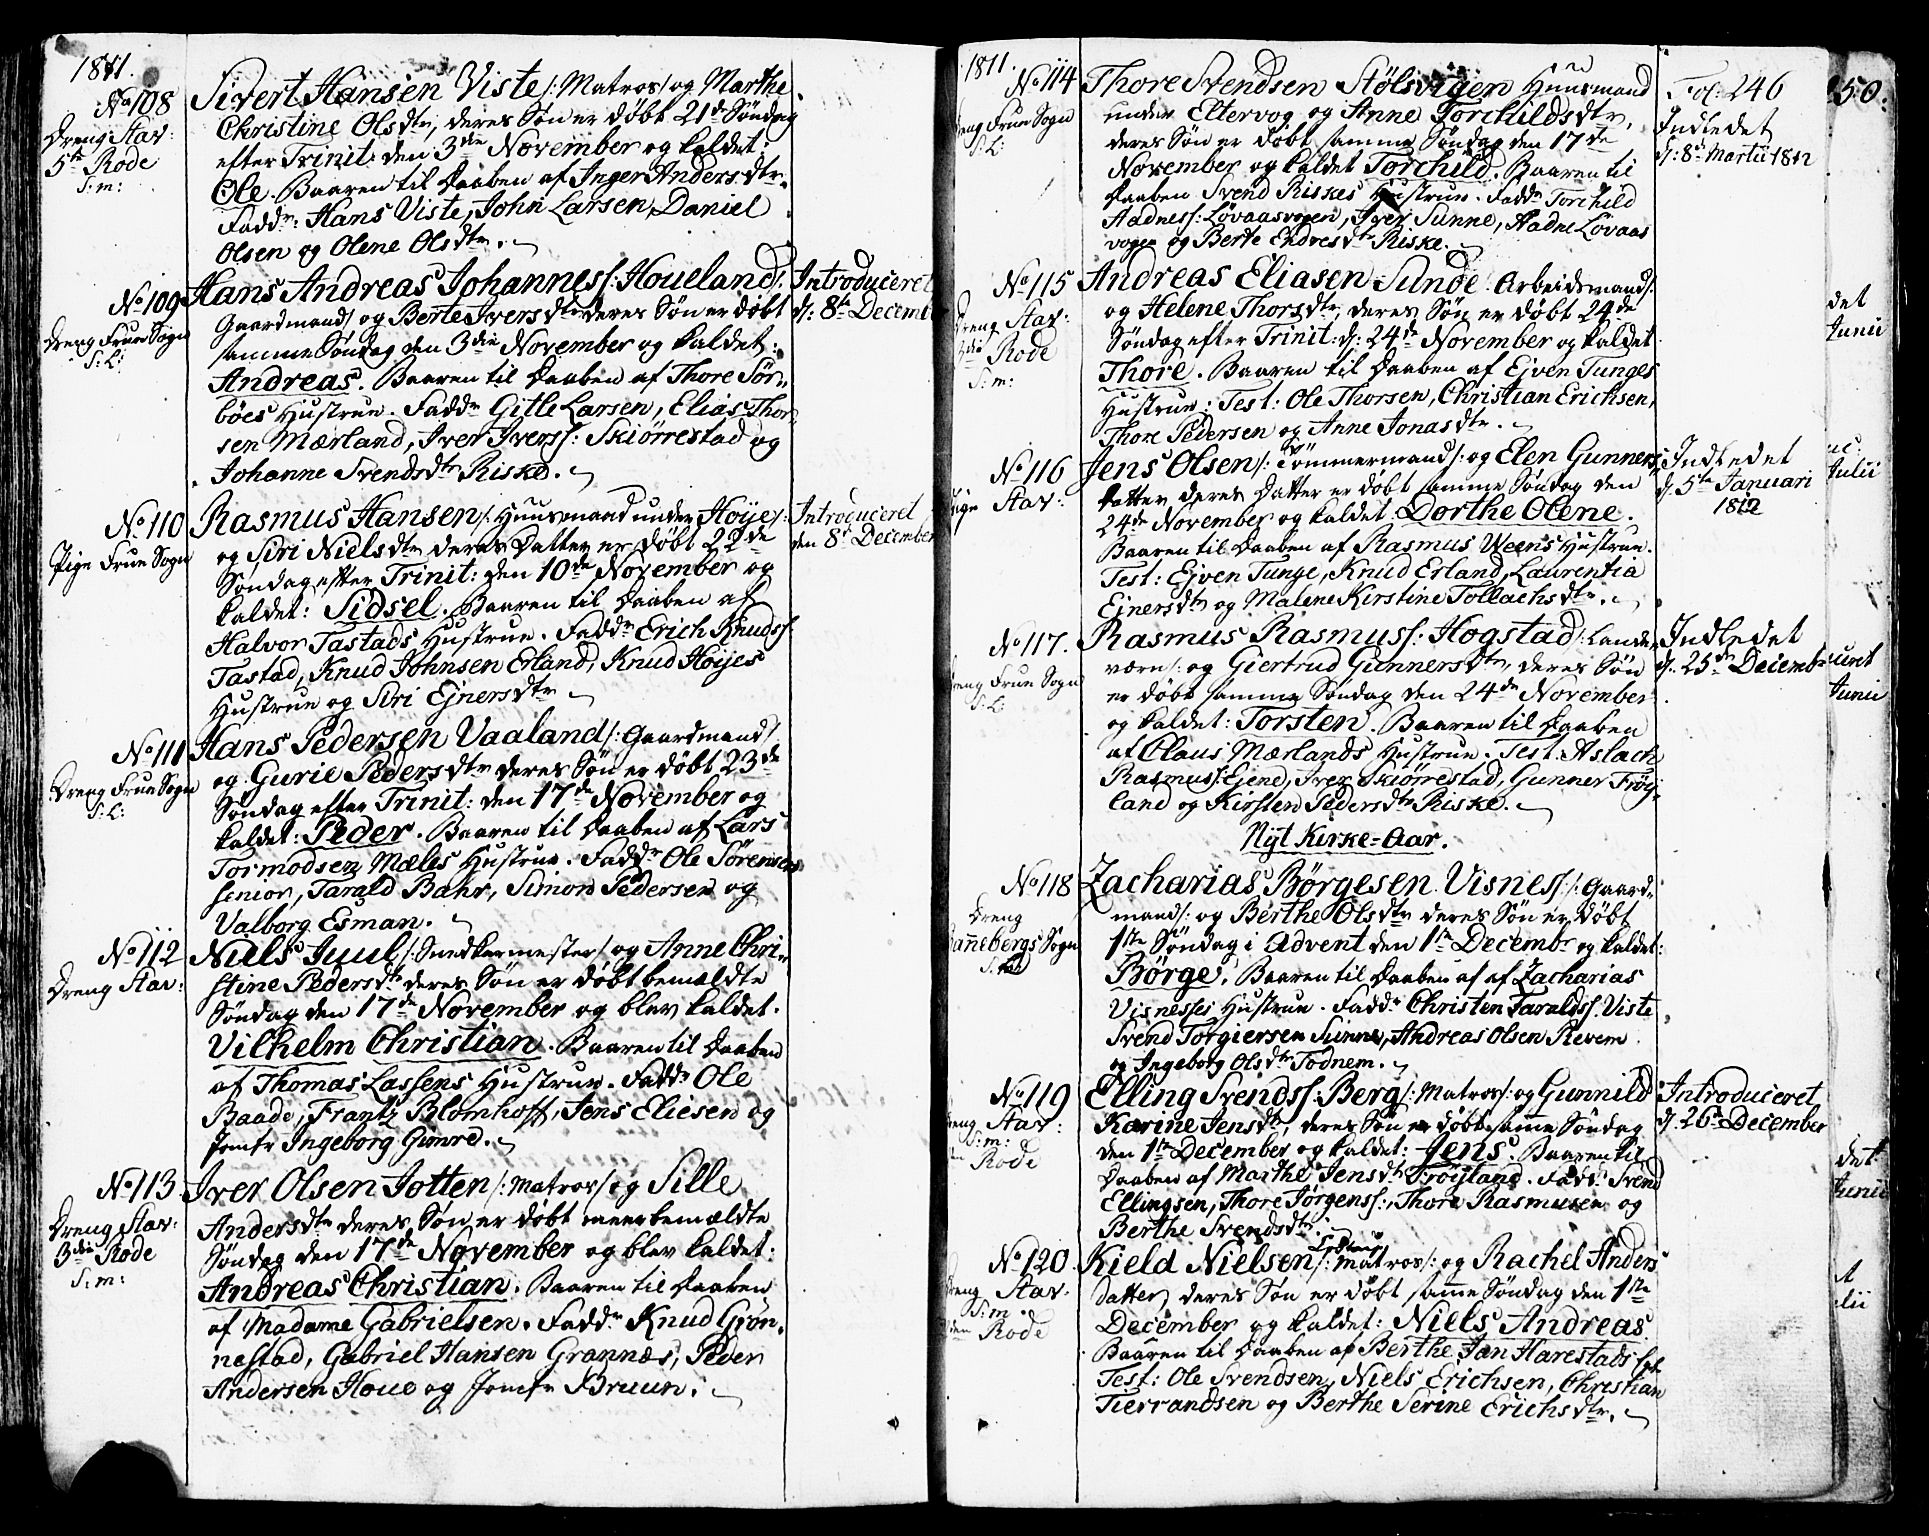 1811.
No 108
Dreng Stav:
5te Rode
S: m:
Sivert Hansen Viste /: Matros/ og Marthe
Christine Olsdtr, deres Søn er døbt 21de Søndag
efter Trinit: den 3die November og kaldet:
Ole. Baaren til Daaben af Inger Anders dtr.
Faddr: Hans Viste, John Larsen, Daniel
Olsen og Olene Olsdtr.
No 109
Dreng Frue Sogn
S: L:
Hans Andreas Johanness: Houeland/:
Gaardmand/ og Berte Iversdtr deres Søn er døbt
samme Søndag den 3die November og kaldet:
Andreas. Baaren til Daaben af Thore Sør-
böes Hustrue. Faddr Gitle Larsen, Elias Thor-
sen Mærland, Iver Iverss: Skiørrestad og
Johanne Svendsdtr Riske.
Introduceret
d: 8de Decemb
No 110
Pige Frue Sogn
Rasmus Hansen /: Huusmand under Høije/:
og Siri Nielsdtr deres Datter er døbt 22de
Søndag efter Trinit: den 10de November og
kaldet: Sidsel. Baaren til Daaben af
Halvor Tastads Hustrue. Faddr Erich Knudss:
Tastad, Knud Johnsen Erland, Knud Høijes
Hustrue og Siri Ejnersdtr
Introduceret
den 8de December
No 111
Dreng Frue Sogn
S: L:
Hans Pedersen Vaaland /: Gaardmand/
og Gurie Pedersdtr deres Søn er døbt 23de
Søndag efter Trinit: den 17de November og
kaldet: Peder. Baaren til Daaben af Lars
Tormodsen Mæles Hustrue. Faddr Ole Sørensen
senior, Tarald Bahr, Simon Pedersen og
Valborg Esman.
No 112
Dreng Stav:
Niels Juul /: Snedkermester/ og Anne Chri-
stine Pedersdtr deres Søn er døbt bemældte
Søndag den 17de November og blev kaldet.
Vilhelm Christian. Baaren til Daaben
af Thomas Lassens Hustrue. Faddr Ole
Baade, Frantz Blomhoff, Jens Eliesen og
Jomfr Ingeborg Gunred.
No 113
Dreng Stav:
3die Rode
S: m:
Iver Olsen Jotten /: Matros/ og Sille
Andersdtr deres Søn er døbt meerbemældte
Søndag den 17de November og blev kaldet:
Andreas Christian. Baaren til Daaben
af Madame Gabrielsen. Faddr Knud Grøn-
nestad, Gabriel Hansen Grannæs, Peder
Andersen Houe og Jomfr Bruun.
1811.
No 114
Dreng Frue Sogn
S: L:
Thore Svendsen Stølsvigen Huusmand
under Eltervog og Anne Torchildsdtr,
deres Søn er døbt samme Søndag den 17de
November og kaldet Torchild. Baaren til
Daaben Svend Riskes Hustrue. Faddr Torchild
Aadness: Løvaasvogen, Iver Sunne, Aadne Løvaas
vogen og Berte Endresdtr Riske.
Fol: 246
Indledet
d: 8de Martii 1812
No 115
Dreng Stav:
3die Rode
S: m:
Andreas Eliasen Sunde Arbeidsmand/:
og Helene Thorsdtr, deres Søn er døbt 24de
Søndag efter Trinit: d: 24de November og kaldet
Thore. Baaren til Daaben af Ejven Tunges
Hustrue: Test: Ole Thorsen, Christian Erichsen,
Thore Pedersen og Anne Jonasdtr.
No 116
Pige Stav:
Jens Olsen /: Tømmermand/: og Elen Gunners-
datter deres Datter er døbt samme Søndag den
24de November og kaldet Dorthe Olene.
Baaren til Daaben af Rasmus Weens Hustrue.
Test: Ejven Tunge, Knud Erland, Laurentia
Ejnersdtr og Malene Kirstine Tollachsdtr.
Indledet
d: 5te Januari
1812
No 117.
Dreng Frue Sogn
S: L:
Rasmus Rasmuss: Hogstad /: Lande
værn/: og Giertrud Gunnersdtr, deres Søn
er døbt samme Søndag den 24de November
og kaldet: Torsten. Baaren til Daaben
af Claus Mærlands Hustrue. Test: Aslach
Rasmuss: Gjene, Iver Skiørrestad, Gunner Frøy-
land og Kirsten Pedersdtr Riske.
Indledet
d: 25de Decembr
Nyt Kirke-Aar.
No 118
Dreng
Rannebergs Sogn
Zacharias Børgesen Visnes /: Gaard-
mand/: og Berthe Olsdtr deres Søn er døbt
1ste Søndag i Advent den 1ste Decembr og kaldet:
Børge. Baaren til Daaben af af Zacharias
Visnesses Hustrue. Faddr Christen Taraldss: Viste
Svend Torgiersen Sunne, Andreas Olsen Revem
og Ingeborg Olsdtr Todnem.
No 119
Dreng Stav:
S: m:
Rode
Elling Svendss: Berg /: Matros/: og Gunnild
Karine Jensdtr, deres Søn er døbt samme Søndag
den 1ste December og kaldet: Jens. Baaren til
Daaben af Marthe Jensdtr Frøyland. Faddr Svend
Ellingsen, Thore Jørgenss:, Thore Rasmusen og
Berthe Svendsdtr.
Introduceret
d: 26de December
No 120
Dreng Stav.
S: m.
Rode
Kield Nielsen /: Matros/: og Rachel Anders
datter deres Søn er døbt samme Søndag den 1ste
December og kaldet: Niels Andreas
Baaren til Daaben af Berthe Jan Harestads
Test: Ole Svendsen, Niels Erichsen, Christian
Tierrandsen og Berthe Serine Erichsdtr.
250.
det
Junii
Julii
uret
Junii
det
Junii
lii